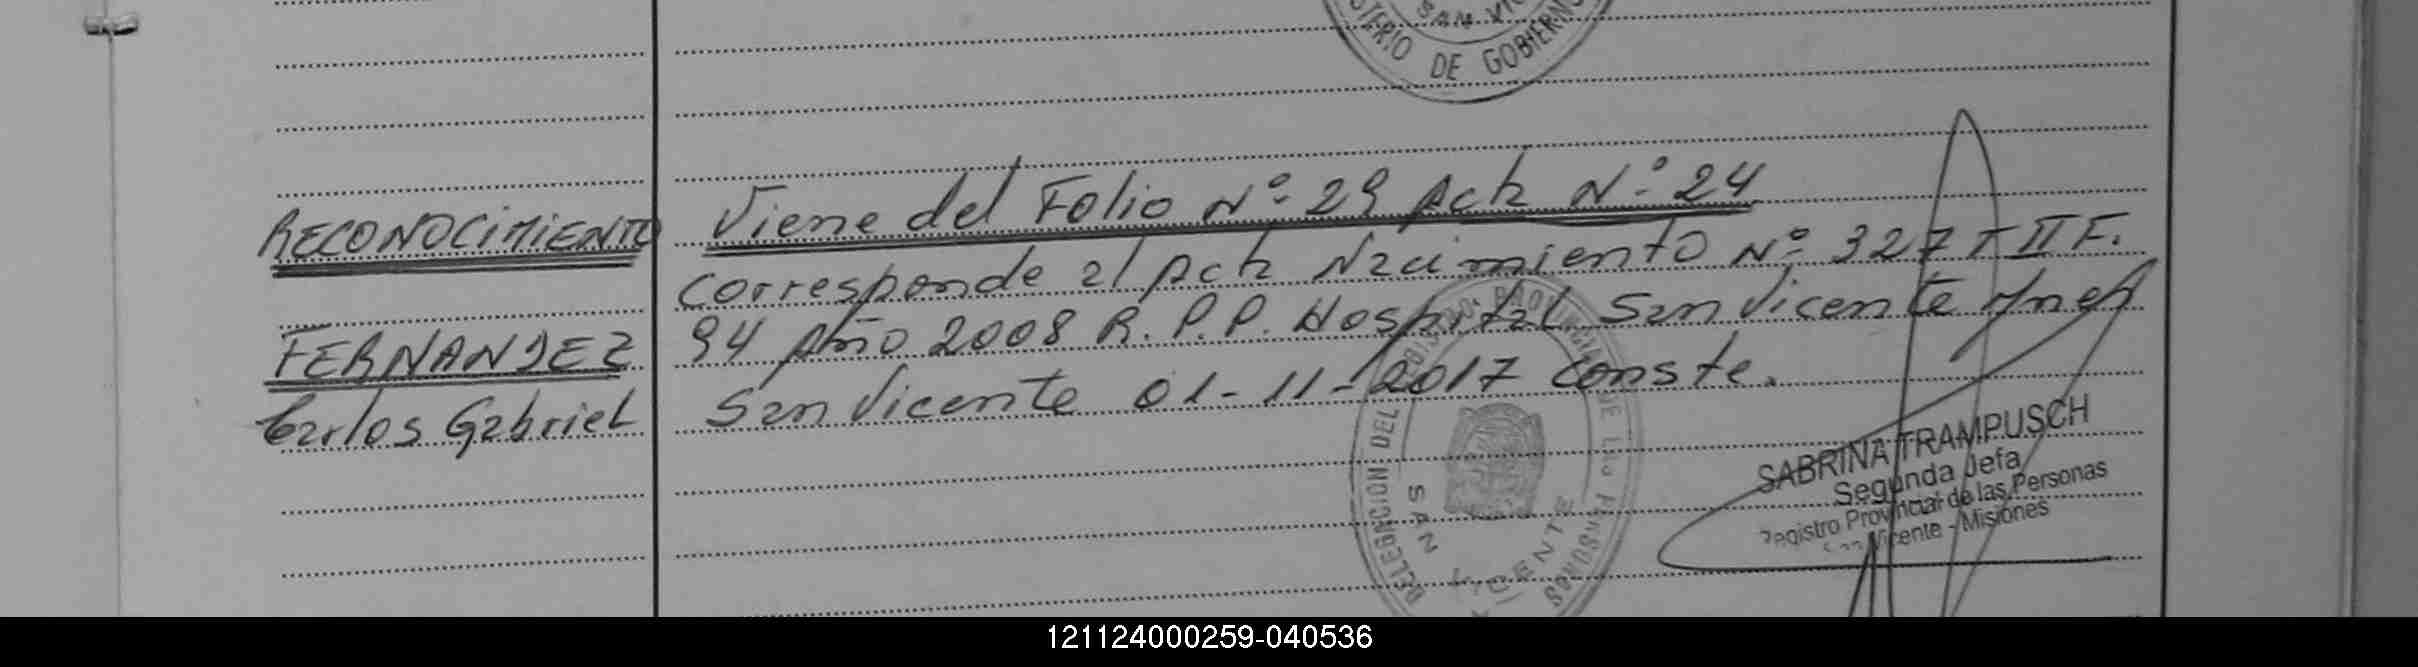 SAN VIC
STERIO DE GOBIERNO
RECONOCIMIENTO
Viene del Folio Nº 29 Acta Nº 24
corresponde al Acta Nacimiento Nº 327 T II F.
FERNANDEZ
94 Año 2008 R.P.P. Hospital San Vicente Mnes
Carlos Gabriel
San Vicente 01-11-2017 conste.
DELEGACION DEL PROVINCIAL DE LAS PERSONAS
SAN VICENTE
SABRINA TRAMPUSCH
Segunda Jefa
Registro Provincial de las Personas
San Vicente - Misiones
121124000259-040536